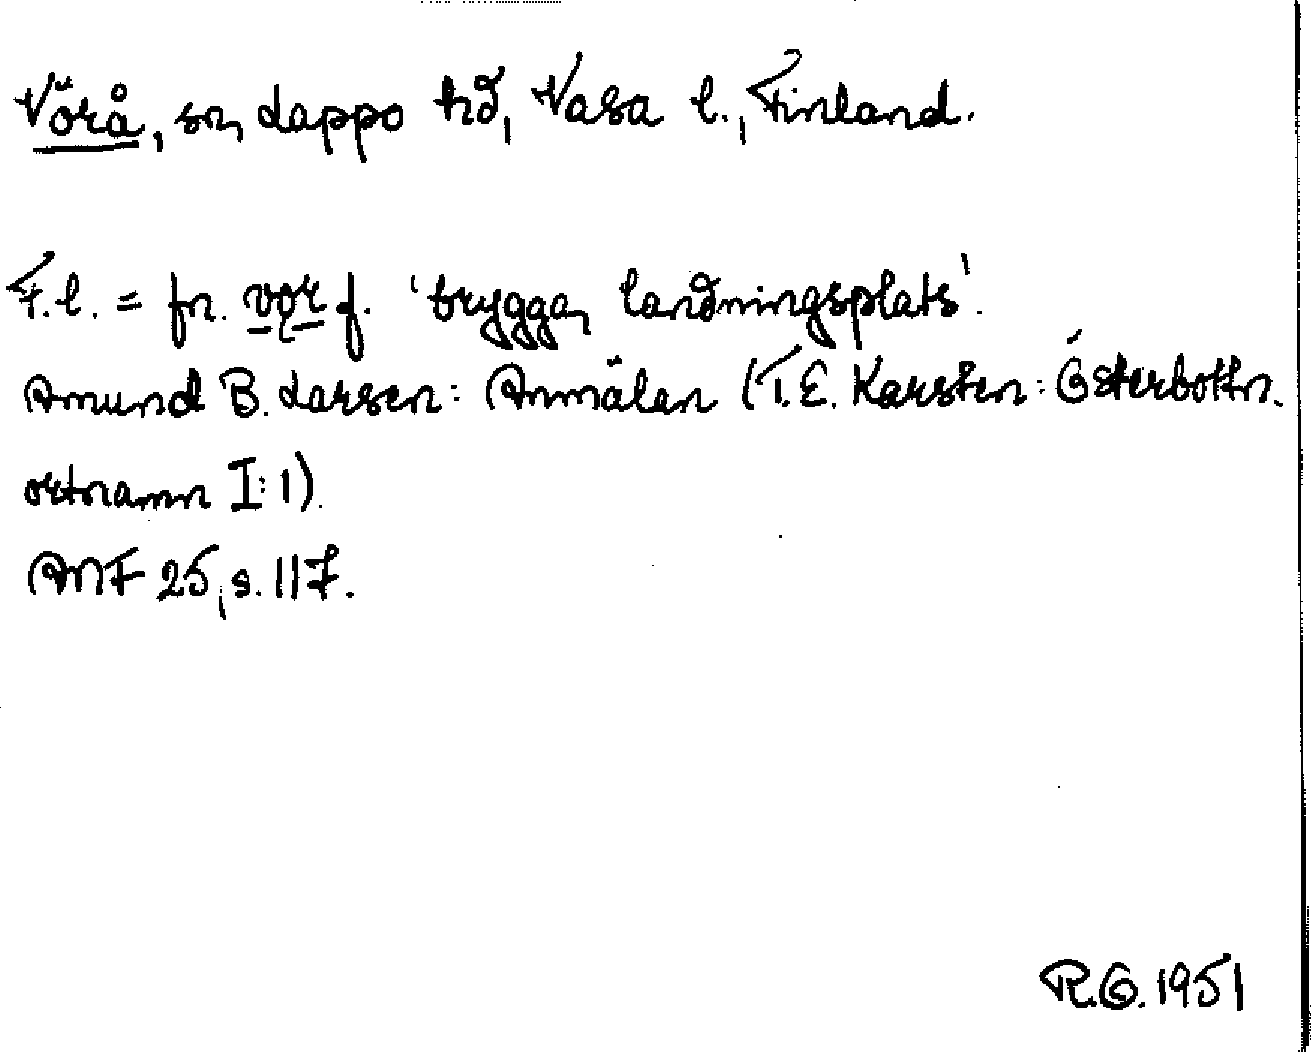 Vörå, sn, Lappo hd, Vasa l., Finland.
F.l. = fn. vǫr f. 'brygga, landningsplats'.
Amund B. Larsen: Anmälan (T.E. Karsten: Österbottn.
ortnamn I:1).
ANF 25, s. 117.
R.G. 1951